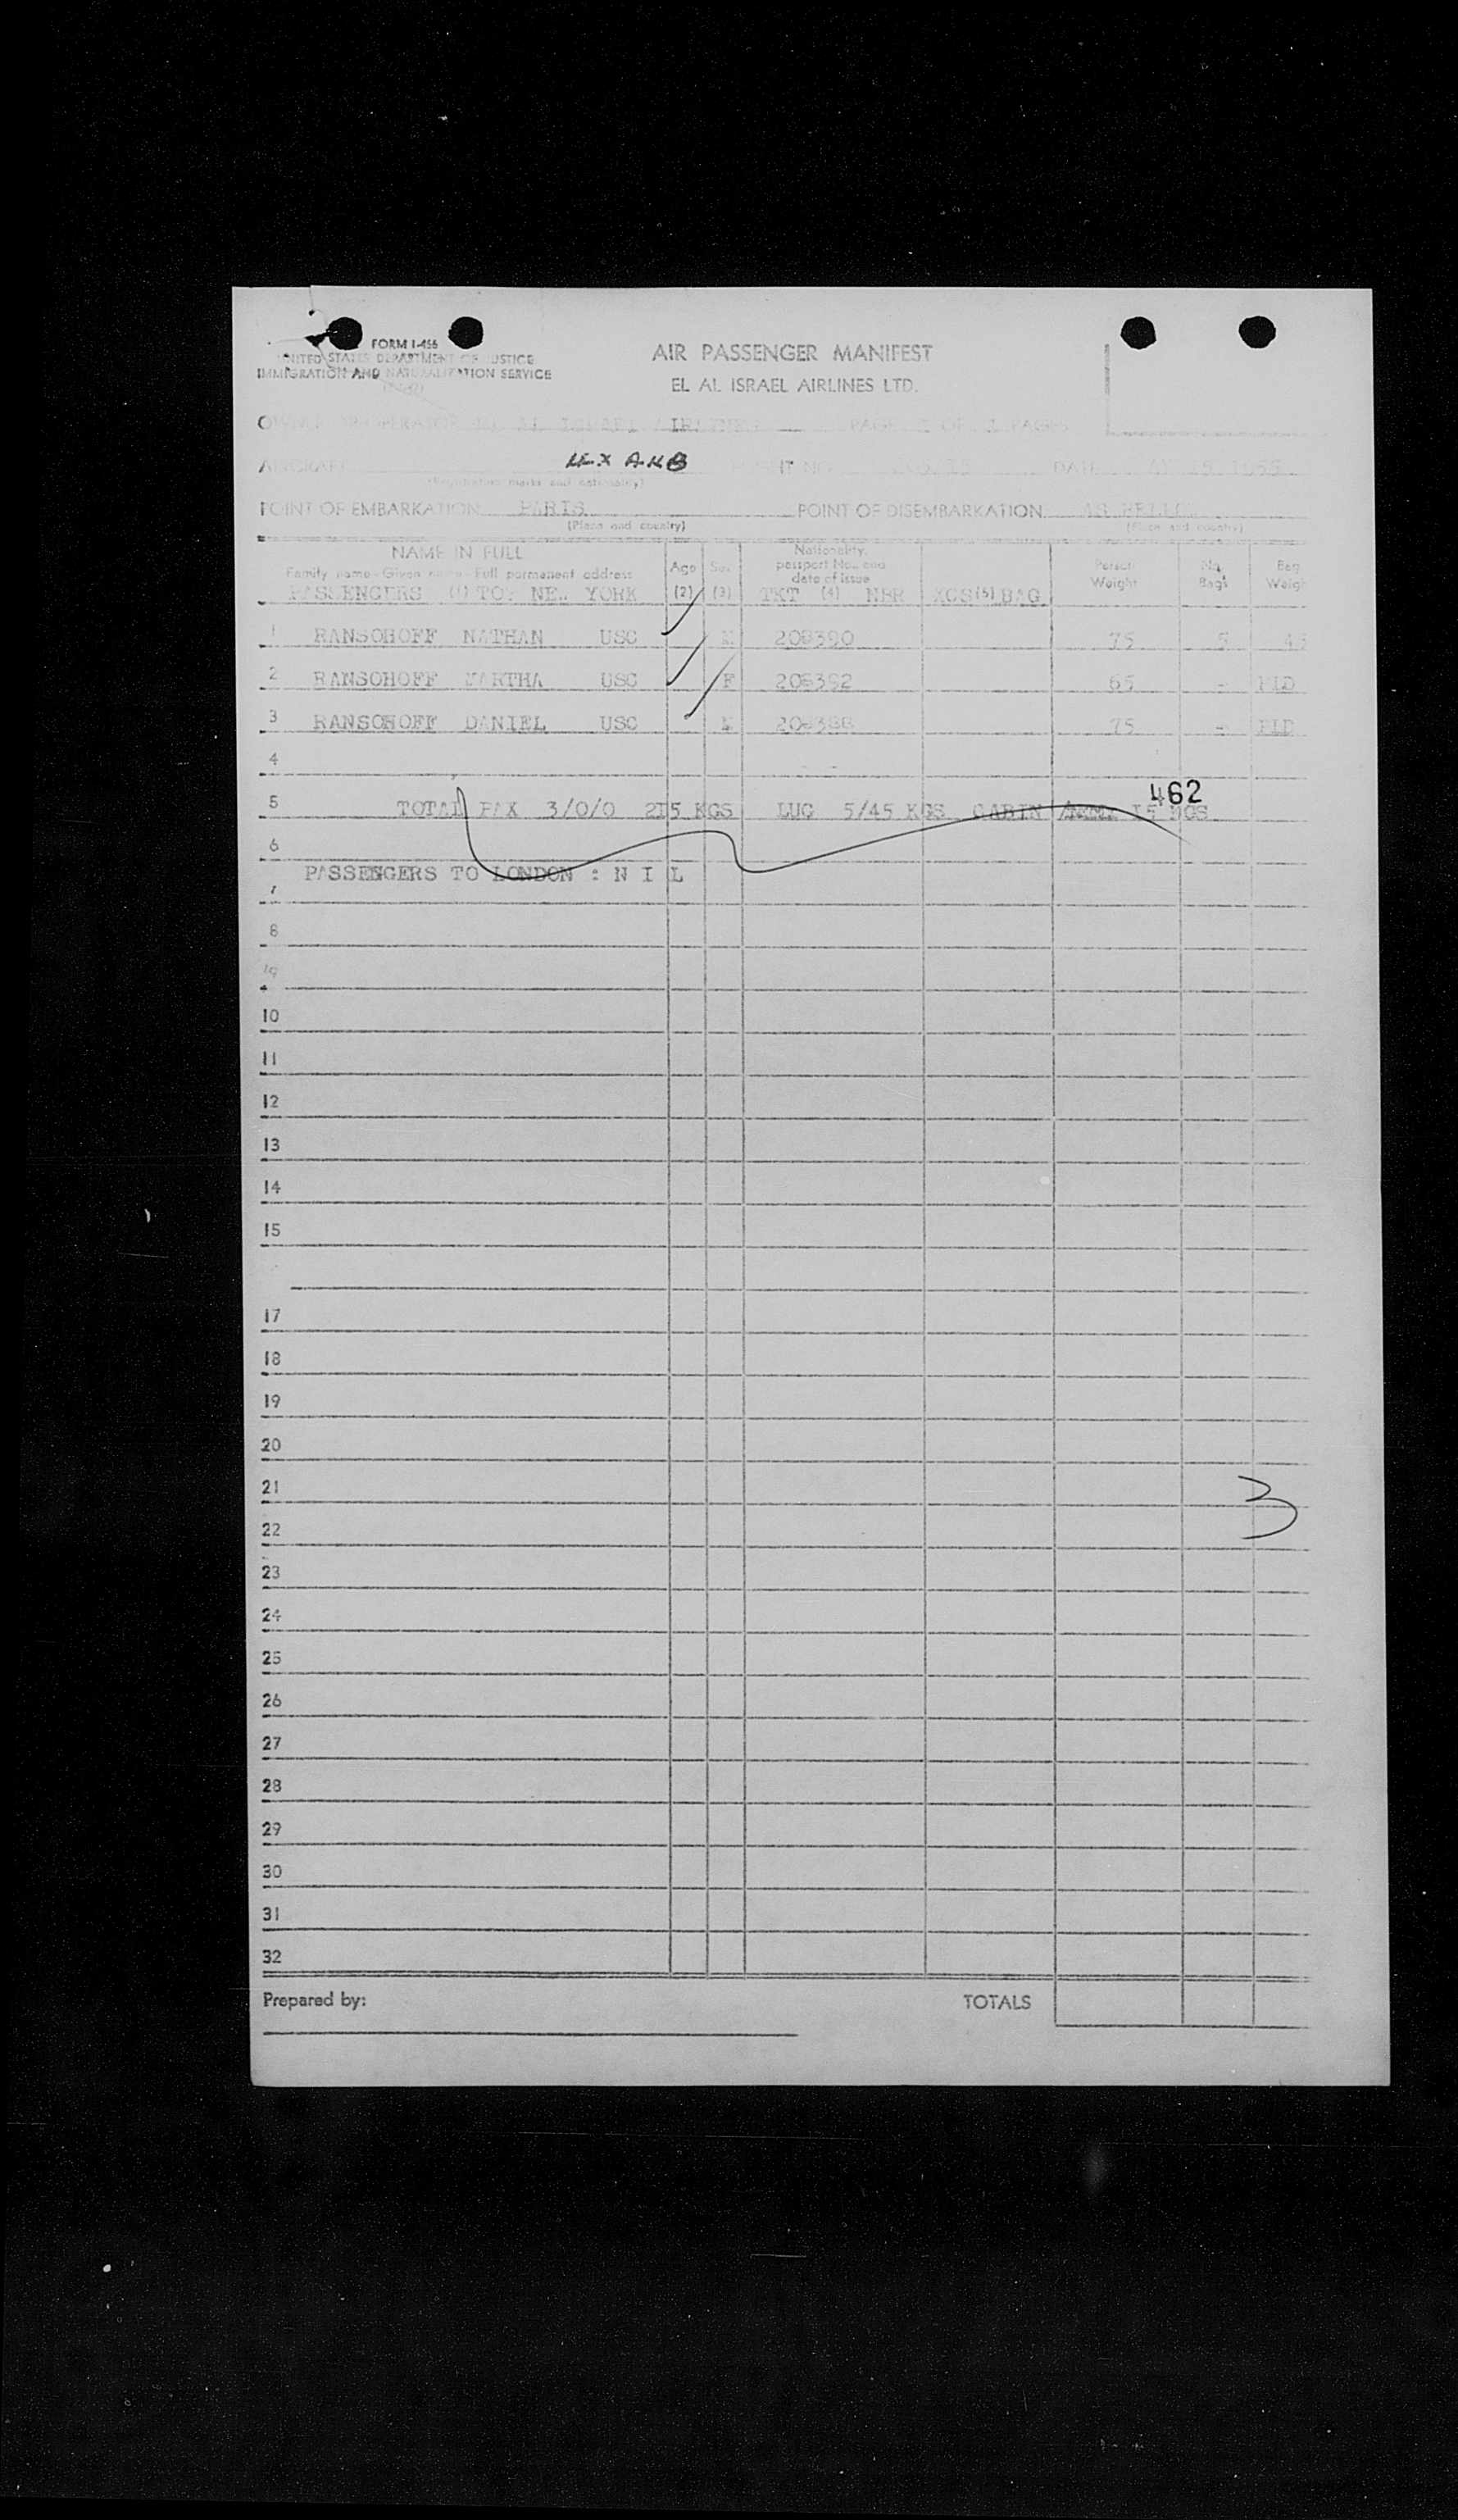 FORM I-456
UNITED STATES DEPARTMENT OF JUSTICE
IMMIGRATION AND NATURALIZATION SERVICE
AIR PASSENGER MANIFEST
EL AL ISRAEL AIRLINES LTD.
OWNER OR OPERATOR EL AL ISRAEL AIRLINES PAGE 1 OF 1 PAGES
AIRCRAFT 4X AKB FLIGHT NO. DATE
(Registration marks and nationality)
POINT OF EMBARKATION PARIS POINT OF DISEMBARKATION AS BELOW
(Place and country) (Place and country)
NAME IN FULL
Family name - Given name - Full permanent address
Age Sex Nationality, passport No., and date of issue Person Weight No. Bags Bag Weigh
PASSENGERS (1) TO: NEW YORK (2) (3) TKT (4) NBR KGS (5) BAG
1 RANSOHOFF NATHAN USC M 208390 75 5 45
2 RANSOHOFF MARTHA USC F 208392 65 - PLD
3 RANSOHOFF DANIEL USC M 208388 75 - PLD
4
462
5 TOTAL PAX 3/0/0 215 KGS LUG 5/45 KGS CABIN 15 KGS
6
PASSENGERS TO LONDON : N I L
7
8
9
10
11
12
13
14
15
17
18
19
20
21
3
22
23
24
25
26
27
28
29
30
31
32
Prepared by: TOTALS